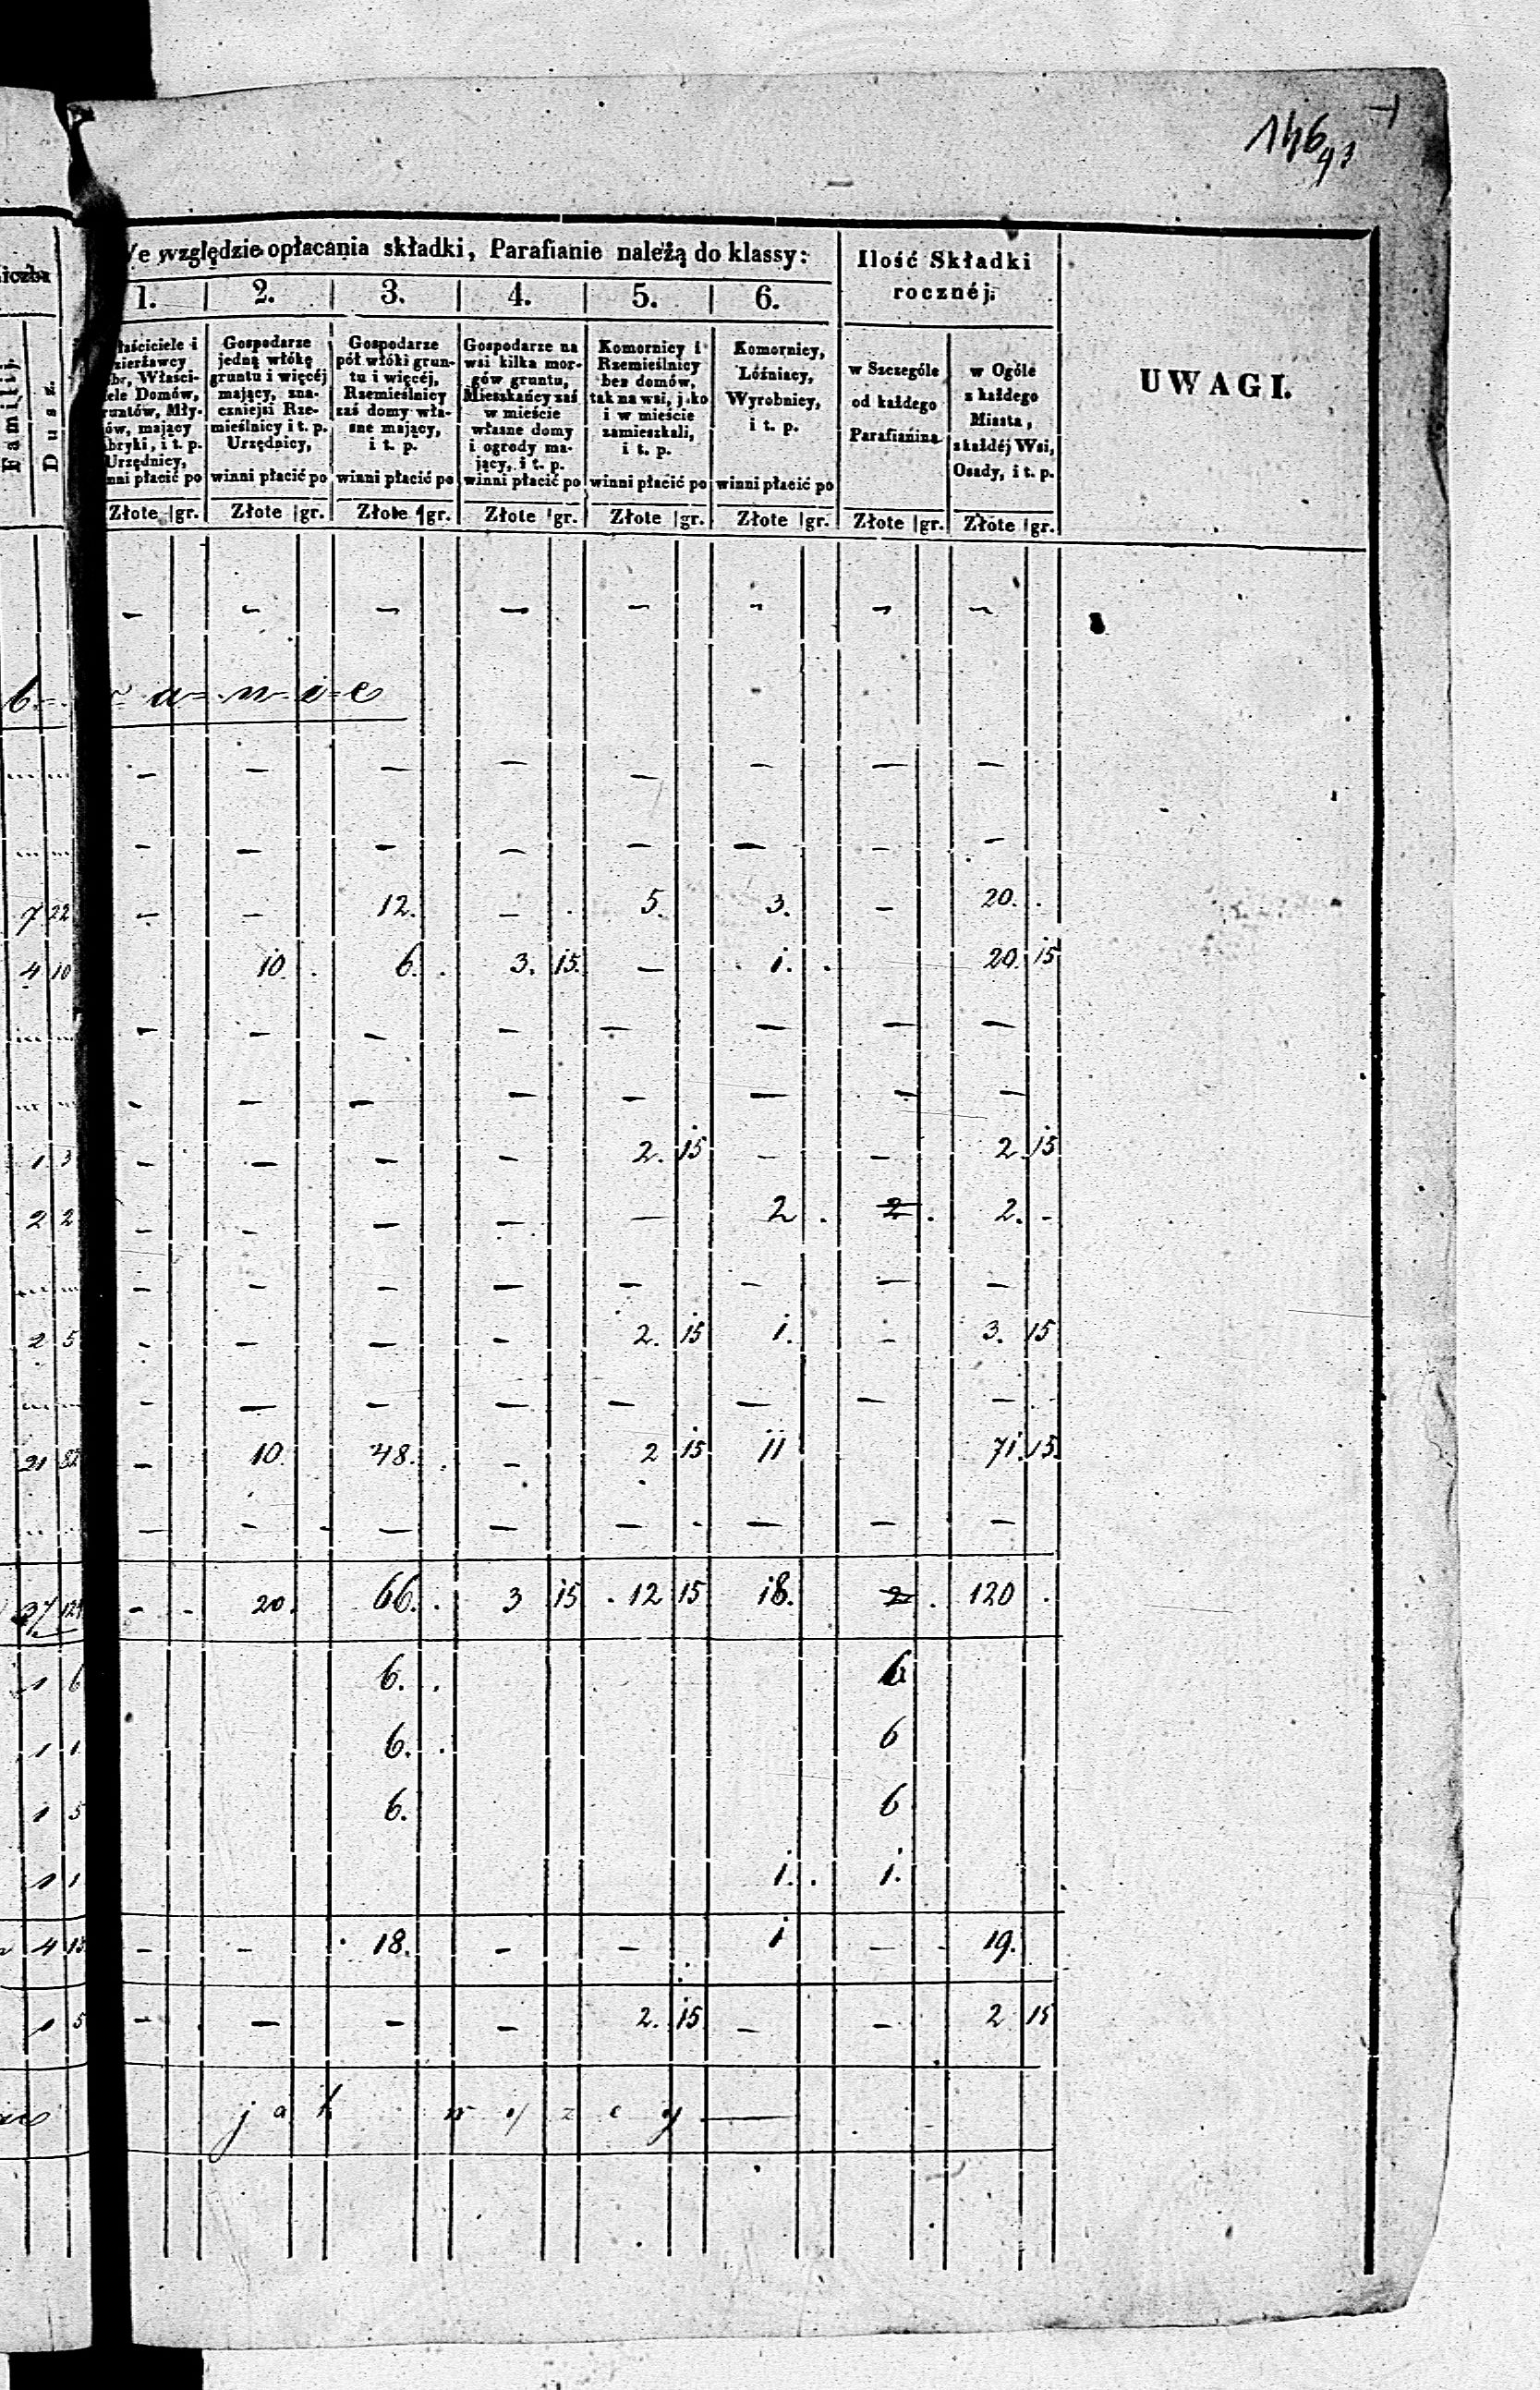 146
We względzie opłacania składki, Parafianie należą do klassy:
Ilość Składki
rocznéj.
UWAGI.
1. 2. 3. 4. 5. 6.
Familij.
Dusz.
Właściciele i
winni płacić po
Gospodarze
jedną włókę
gruntu i więcéj
mający, zna-
czniejsi Rze-
mieślnicy i t. p.
Urzędnicy,
winni płacić po
Gospodarze
pół włóki grun-
tu i więcéj,
Rzemieślnicy
zaś domy wła-
sne mający,
i t. p.
winni płacić po
Gospodarze na
wsi kilka mor-
gów gruntu,
Mieszkańcy zaś
w mieście
własne domy
i ogrody ma-
jący, i t. p.
winni płacić po
Komornicy i
Rzemieślnicy
bez domów,
tak na wsi, jako
i w mieście
zamieszkali,
i t. p.
winni płacić po
Komornicy,
Lóźniacy,
Wyrobnicy,
i t. p.
winni płacić po
w Szczególe
od każdego
Parafianina
w Ogóle
z każdego
Miasta,
z każdéj Wsi,
Osady, i t. p.
Złote gr. Złote gr. Złote gr. Złote gr. Złote gr. Złote gr. Złote gr. Złote gr.
— — — — — — — —
a=n=i=e
— — — — — — — —
— — — — — — — —
7 22 — — 12. — 5. 3. — 20.
4 10 10. 6. 3. 15. — 1. 20. 15
— — — — — — — —
— — — — — — — —
1 3 — — — — 2. 15 — — 2. 15
2 2 — — — — — 2 2. 2. -
— — — — — — — —
2 5 — — — — 2. 15 1. — 3. 15
— — — — — — — —
21 — 10. 48. — 2 15 11 71. 15.
— — — — — — — —
37 - 20. 66. 3 15 12 15 18. 2. 120
1 6 6. 6
1 1 6. 6
1 5 6. 6
1 1 1. 1.
4 13 — — 18. — — 1 — 19.
1 5 — — — — 2. 15 — — 2 15
jak wyzey —